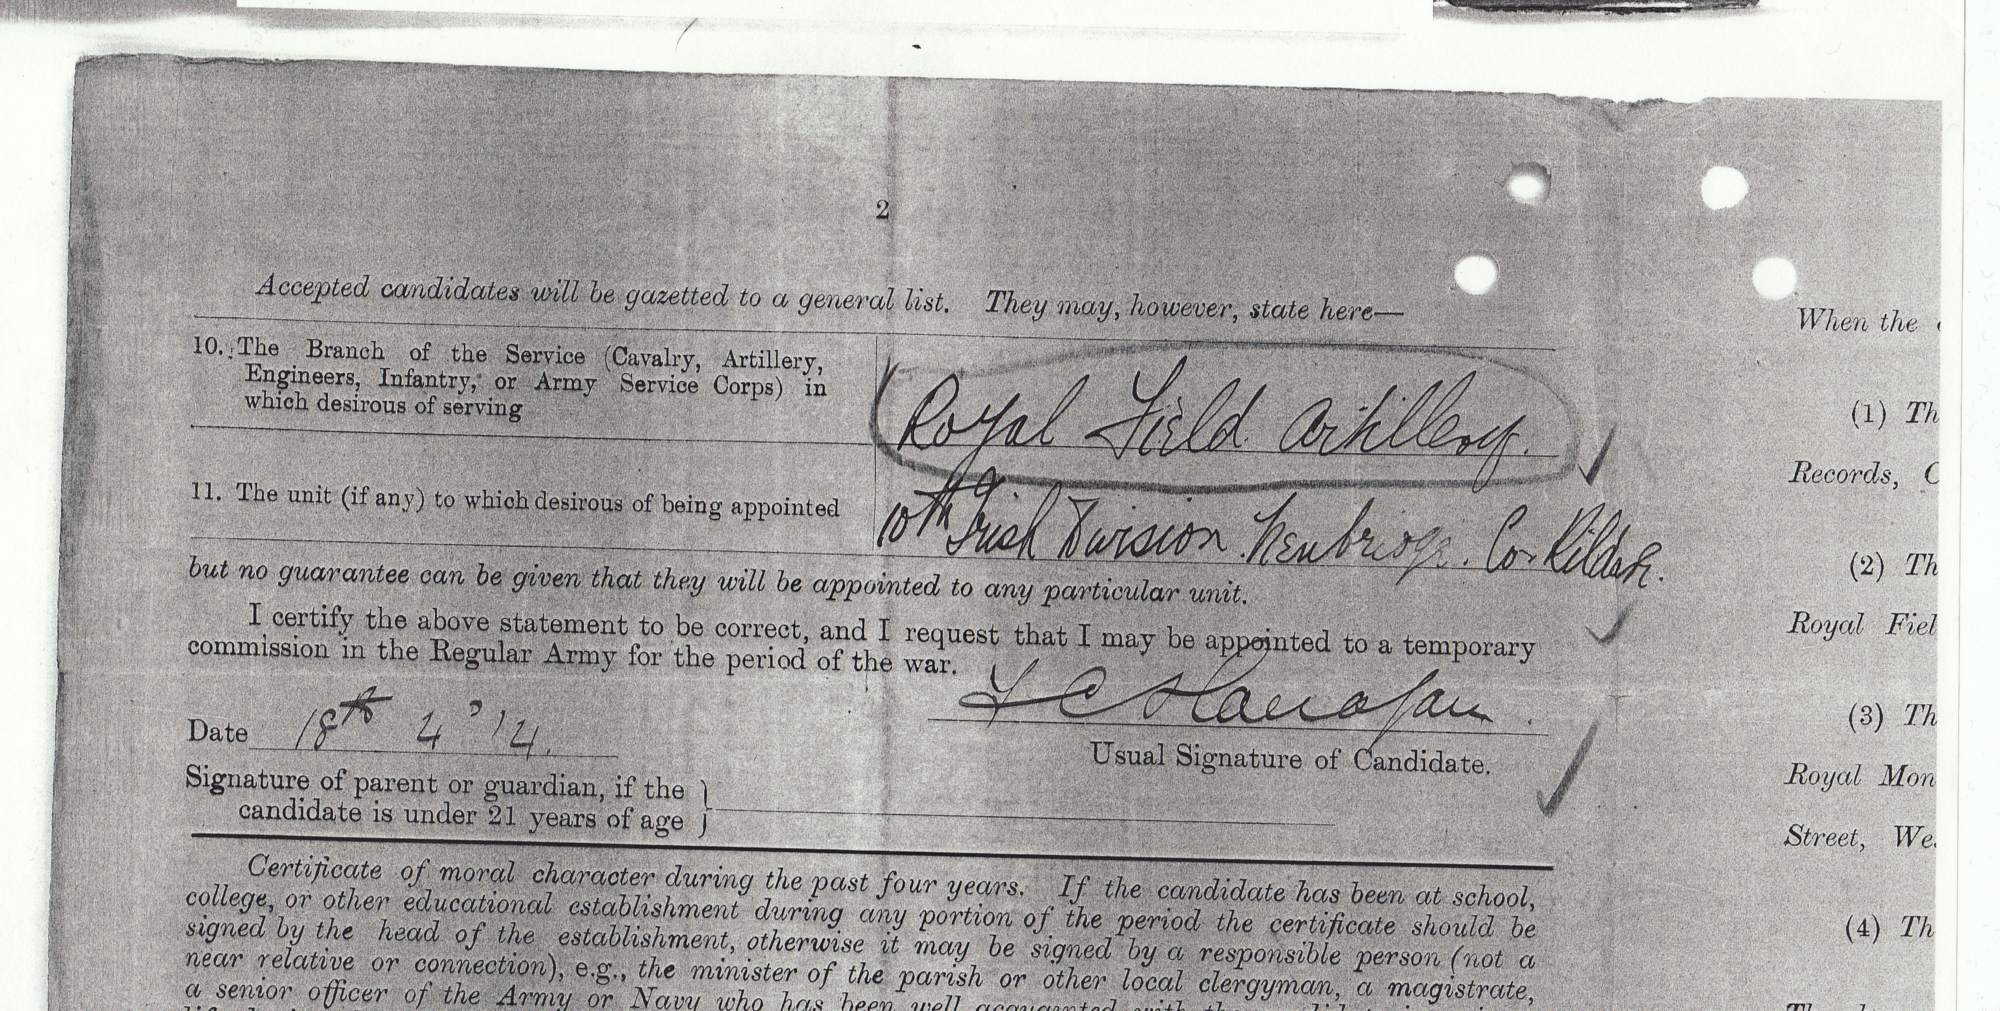 2
Accepted candidates will be gazetted to a general list. They may, however, state here—
10. The Branch of the Service (Cavalry, Artillery,
Engineers, Infantry, or Army Service Corps) in
which desirous of serving
Royal Field Artillery.
11. The unit (if any) to which desirous of being appointed
10th Irish Division. Newbridge. Co. Kildare.
but no guarantee can be given that they will be appointed to any particular unit.
I certify the above statement to be correct, and I request that I may be appointed to a temporary
commission in the Regular Army for the period of the war.
Date 18th 4 '14.
Usual Signature of Candidate.
Signature of parent or guardian, if the
candidate is under 21 years of age
Certificate of moral character during the past four years. If the candidate has been at school,
college, or other educational establishment during any portion of the period the certificate should be
signed by the head of the establishment, otherwise it may be signed by a responsible person (not a
near relative or connection), e.g., the minister of the parish or other local clergyman, a magistrate,
a senior officer of the Army or Navy who has been well acquainted with
When the
(1) Th
Records, C
(2) Th
Royal Fiel
(3) Th
Royal Mon
Street, We
(4) Th